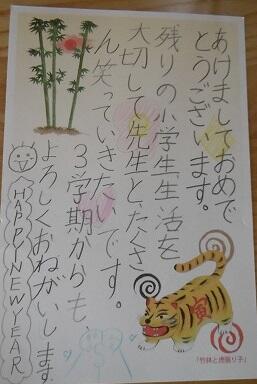 あけましておめで
とうございます。
残りの小学生生活を
大切して先生と、たくさ
ん笑っていきたいです。
3学期からも
よろしくおねがいします
HAPPY NEW YEAR
寅
「竹林と虎張り子」